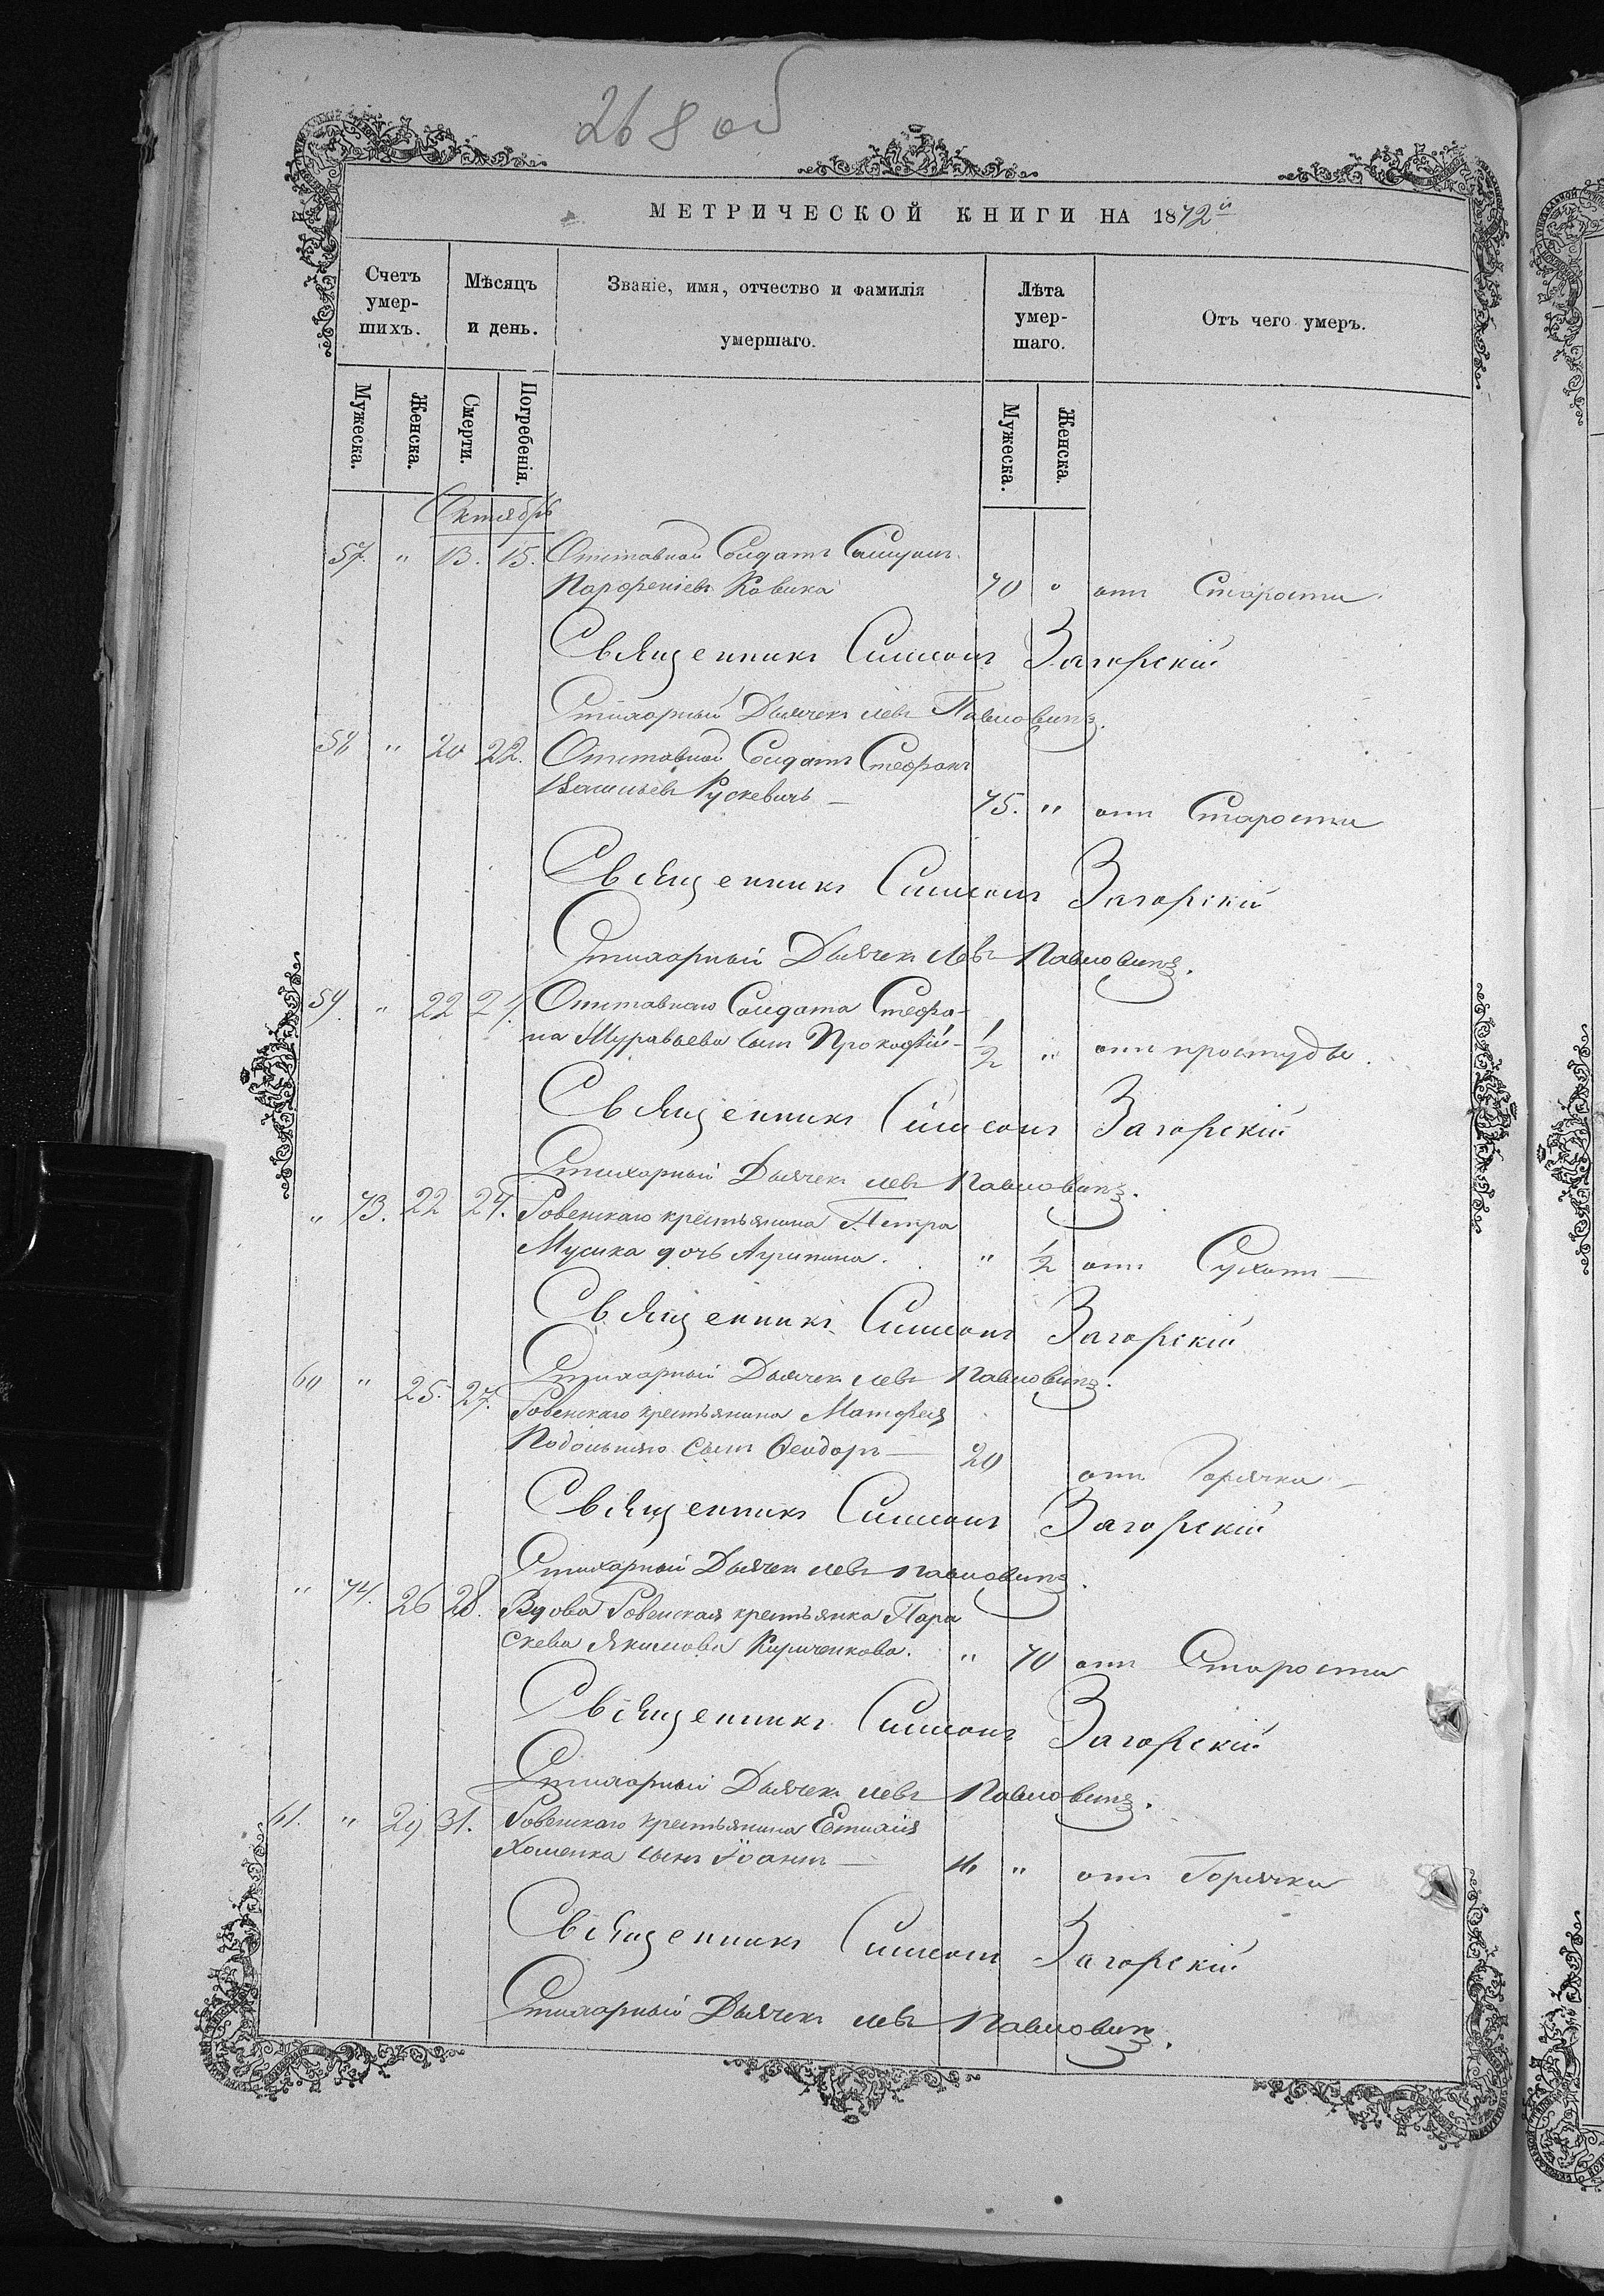 268 об
МЕТРИЧЕСКОЙ КНИГИ НА 1872й
Счетъ умер-шихъ.
Мѣсяцъ и день.
Званіе, имя, отчество и фамилія умершаго.
Лѣта умер-шаго.
Отъ чего умеръ.
Мужеска. Женска. Смерти. Погребенія. Мужеска. Женска.
Октябрь
57. " 13. 15. Отставной Солдатъ
Парфеніевъ Ковика 70 " отъ Старости.
Священникъ Симеонъ Загорскій
Стихарный Дьячекъ Левъ Павловичъ.
58 " 20 22. Отставной Солдатъ Стефанъ
Васильевъ Рускевичъ — 75. " отъ Старости
Священникъ Симеонъ Загорскій
Стихарный Дьячекъ Левъ Павловичъ.
59. " 22 24. Отставнаго Солдата Стефа-
на Муравьева сынъ Прокофій — 1/2 " отъ простуды.
Священникъ Симеонъ Загорскій
Стихарный Дьячекъ Левъ Павловичъ.
" 73. 22 24. Ровенскаго крестьянина Петра
Мусика дочь Агрипина. " 1/2 отъ Сухоты —
Священникъ Симеонъ Загорскій
Стихарный Дьячекъ Левъ Павловичъ.
60 " 25. 27. Ровенскаго крестьянина Матфея
сынъ Феодоръ — 20 отъ Горячки —
Священникъ Симеонъ Загорскій
Стихарный Дьячекъ Левъ Павловичъ.
" 74. 26 28. Вдова Ровенская крестьянка Пара
скева Якимова Кириченкова. " 70 отъ Старости
Священникъ Симеонъ Загорскій
Стихарный Дьячекъ Левъ Павловичъ.
61. " 29 31. Ровенскаго крестьянина
Хоменка сынъ Іоаннъ — " отъ Горячки
Священникъ Симеонъ Загорскій
Стихарный Дьячекъ Левъ Павловичъ.